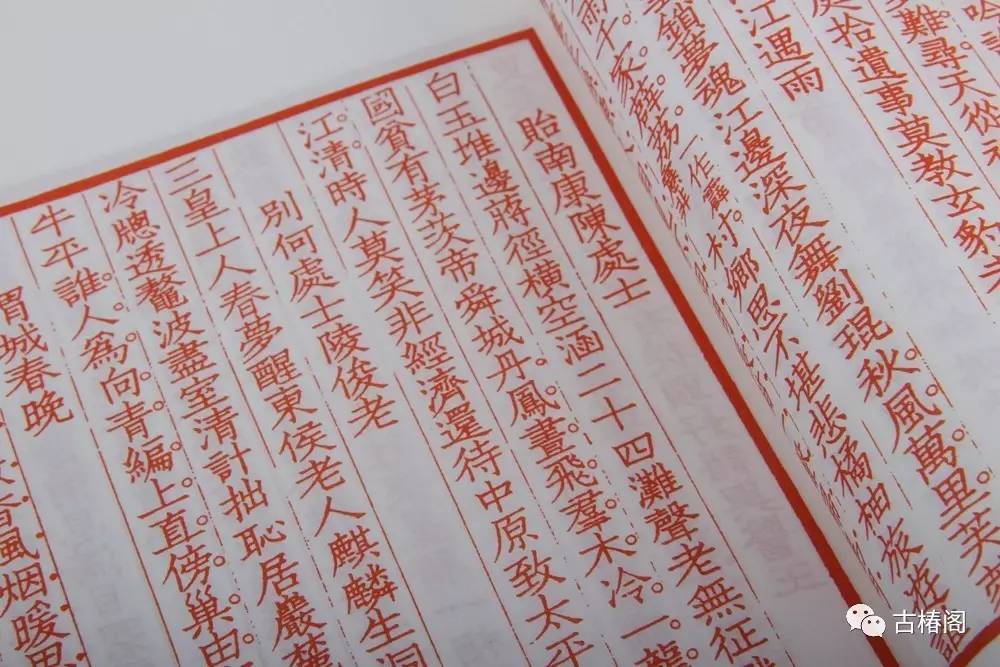 難。尋天從
拾遺事莫教玄豹
江遇雨
鎖夢魂江邊深夜舞劉琨秋。風。萬。里。芙
雨。千。家。薜。荔。村。鄉思不堪悲橘柚
貽南康陳處士
白玉堆邊蔣徑橫空涵二十四灘聲老無征
國貧有茅茨帝舜城丹。鳳。晝。飛。羣。木。冷。一。龍。
江。清。時人莫笑非經濟還待中原致太平
別何處士陵俊老
三皇上人春夢醒東侯老人麒麟生洞
冷牕透鼇波盡室清計拙恥居巖
牛平誰。人。為。向。青。編。上。直。傍。巢。由
渭城春晚
香風烟暖思
古椿阁